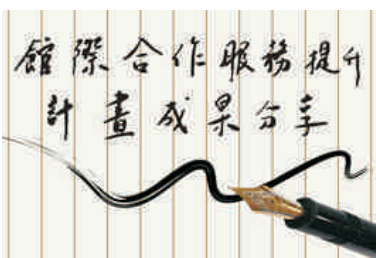 館際合作服務提升
計畫成果分享